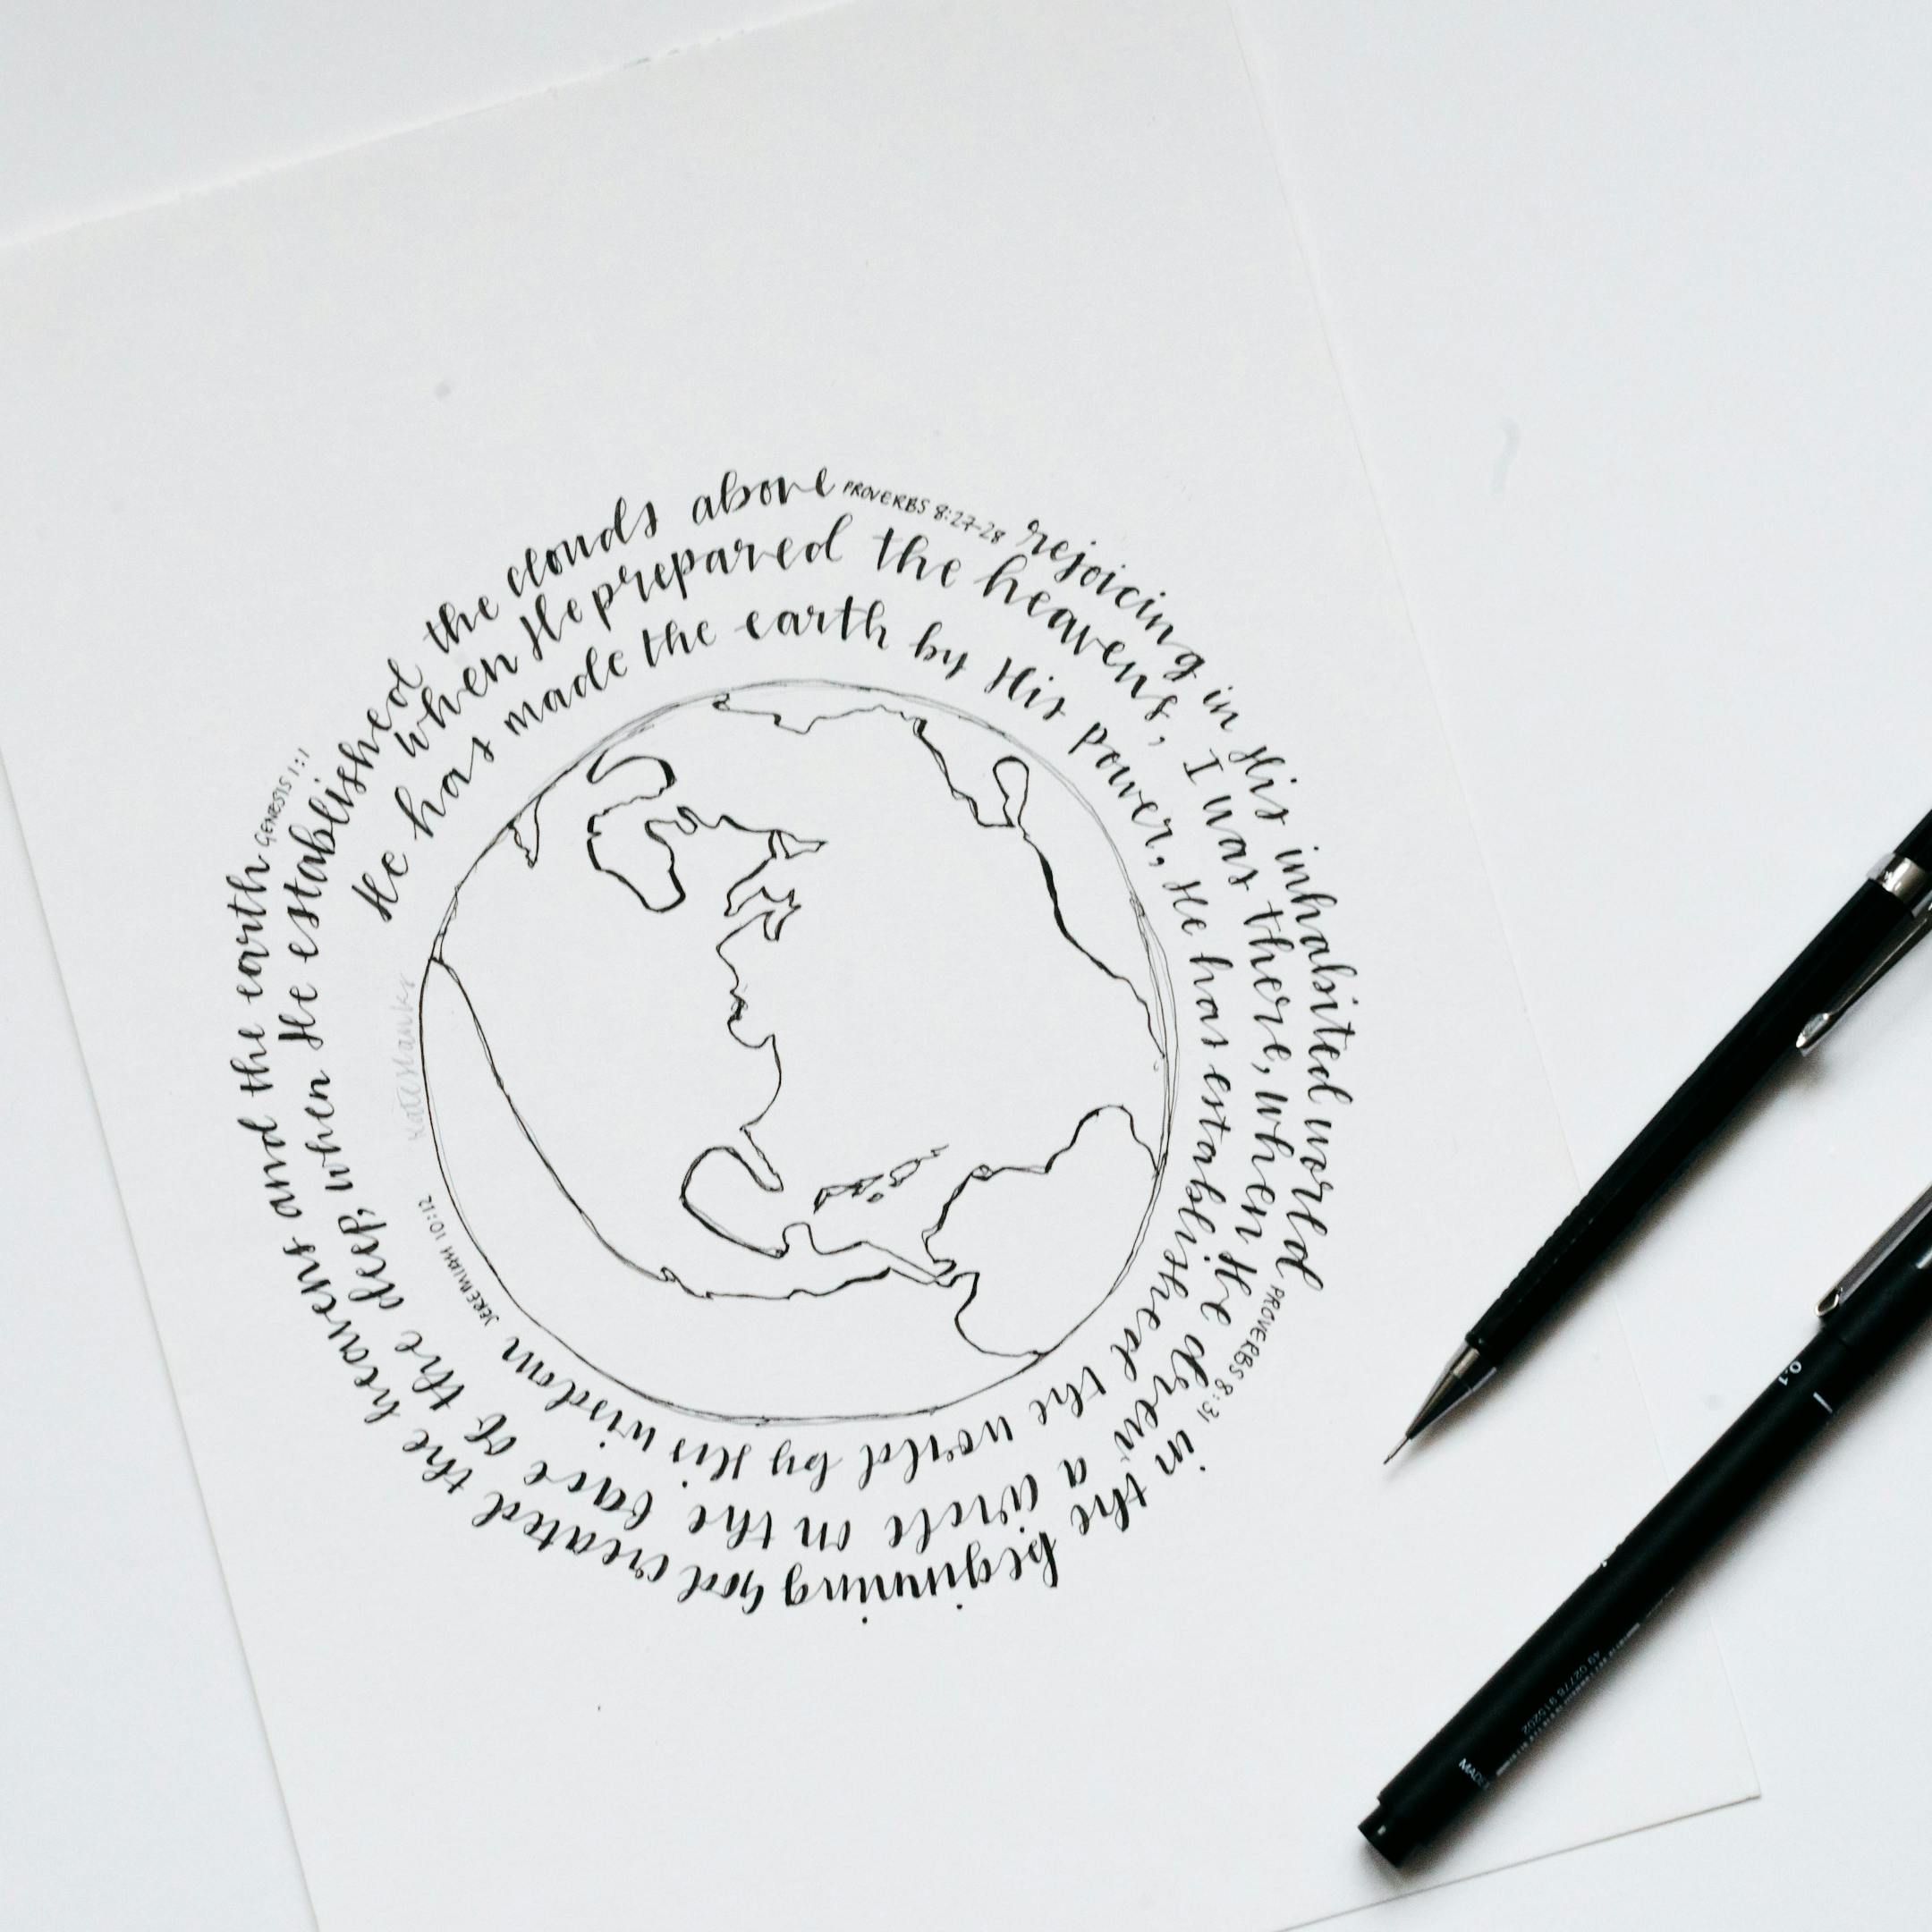 He has made the earth by His power, He has established the world by His wisdom JEREMIAH 10:12
when He prepared the heavens, I was there, when He drew a circle on the face of the deep; when He established the clouds above PROVERBS 8:27-28
rejoicing in His inhabited world PROVERBS 8:31
in the beginning God created the heavens and the earth GENESIS 1:1
0.1
49 02778 915202